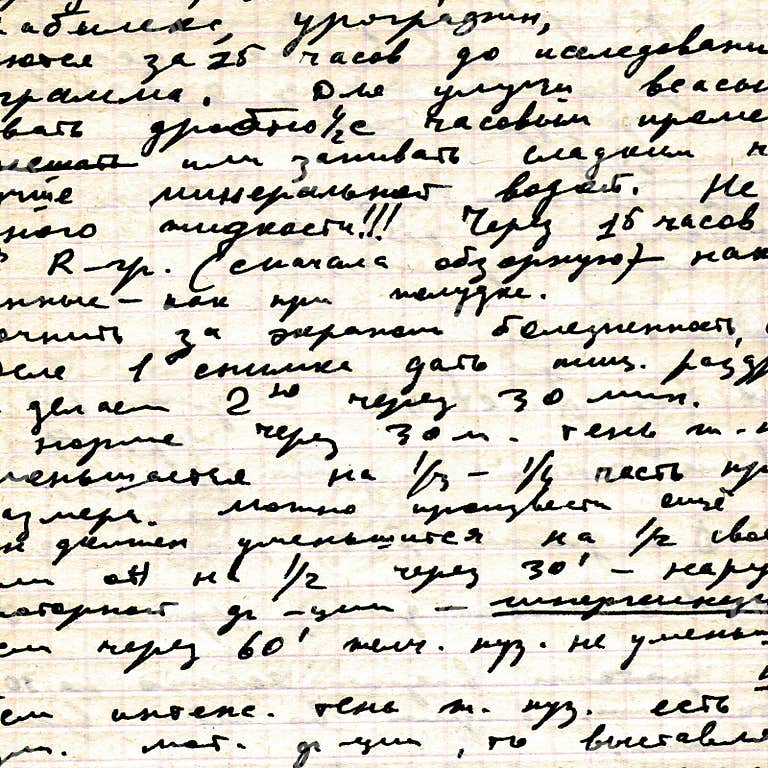 урографин,
ются за 15 часов до исследовани
грамма. Для улучш всасы
вать дробно ½ с часовым проме
мешать или запивать сладким ч
учше минеральной водой. Не
ного жидкости!!! Через 15 часов
R-гр. (сначала обзорную) нак
нные – как при желудке.
очнить за экраном болезненность,
сле 1 снимка дать жиш. раздр
делаем 2ю через 30 мин.
норме через 30 м. тень ж. п
меньшается на 1/3 – 1/4 часть пр
азмера. Можно произвести ещё
н должен уменьшится на 1/2 свое
ли он на 1/2 через 30' – нару
моторной ф-ции –
ем через 60' желч. пуз. не уменьш
ем интенс. тень ж. пуз. есть
мот. ф-ции, то выставля